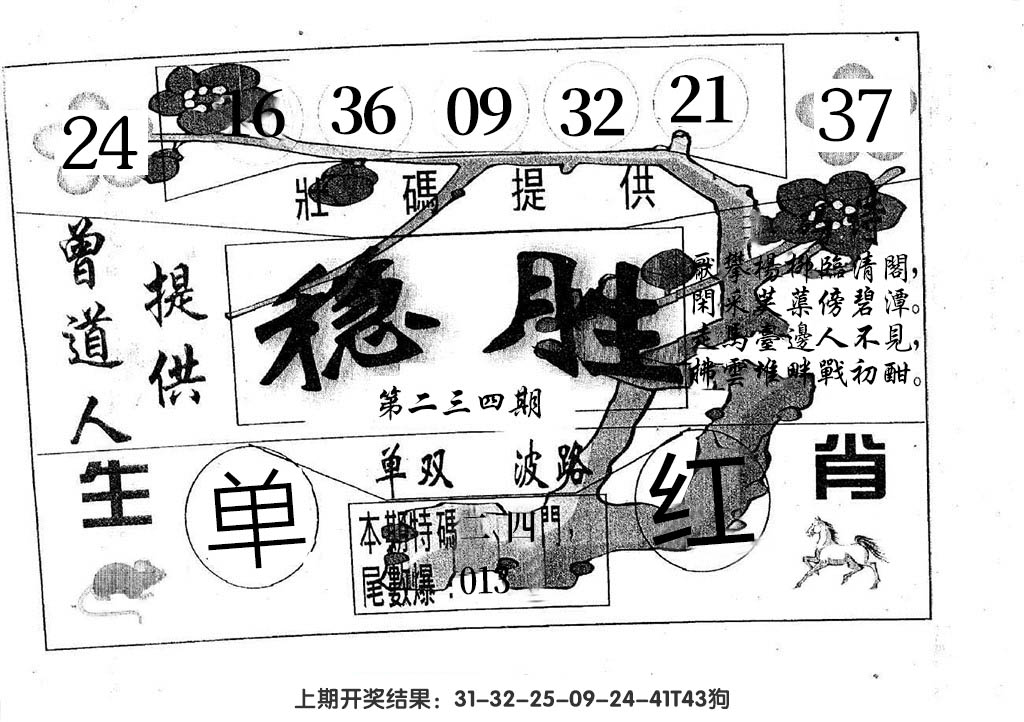 24 16 36 09 32 21 37
壯碼提供
曾道人
提供
稳胜
第二三四期
厭攀楊柳臨清閣，
閑采芙蕖傍碧潭。
走馬臺邊人不見，
拂雲堆畔戰初酣。
单双 波路
生肖
单
红
本期特碼二、四門，
尾數爆：013
上期开奖结果：31-32-25-09-24-41T43狗